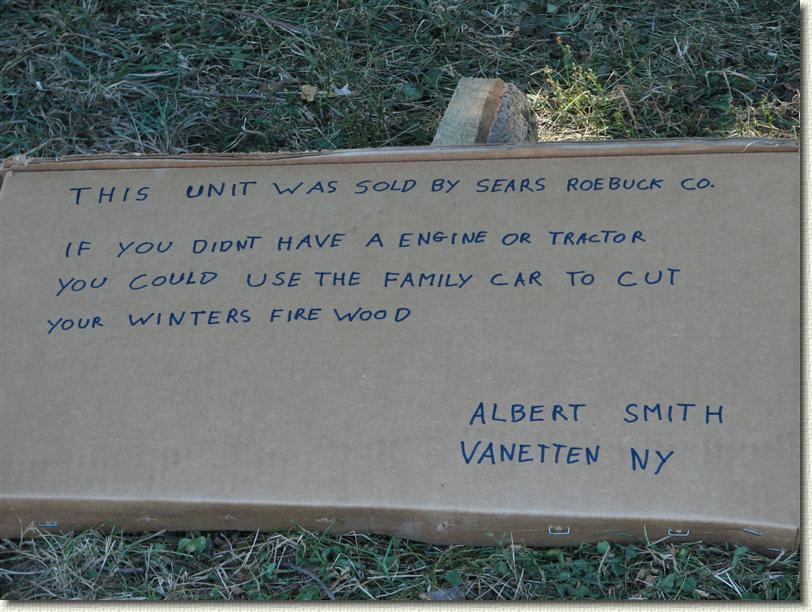 THIS UNIT WAS SOLD BY SEARS ROEBUCK CO.
IF YOU DIDNT HAVE A ENGINE OR TRACTOR
YOU COULD USE THE FAMILY CAR TO CUT
YOUR WINTERS FIRE WOOD
ALBERT SMITH
VANETTEN NY